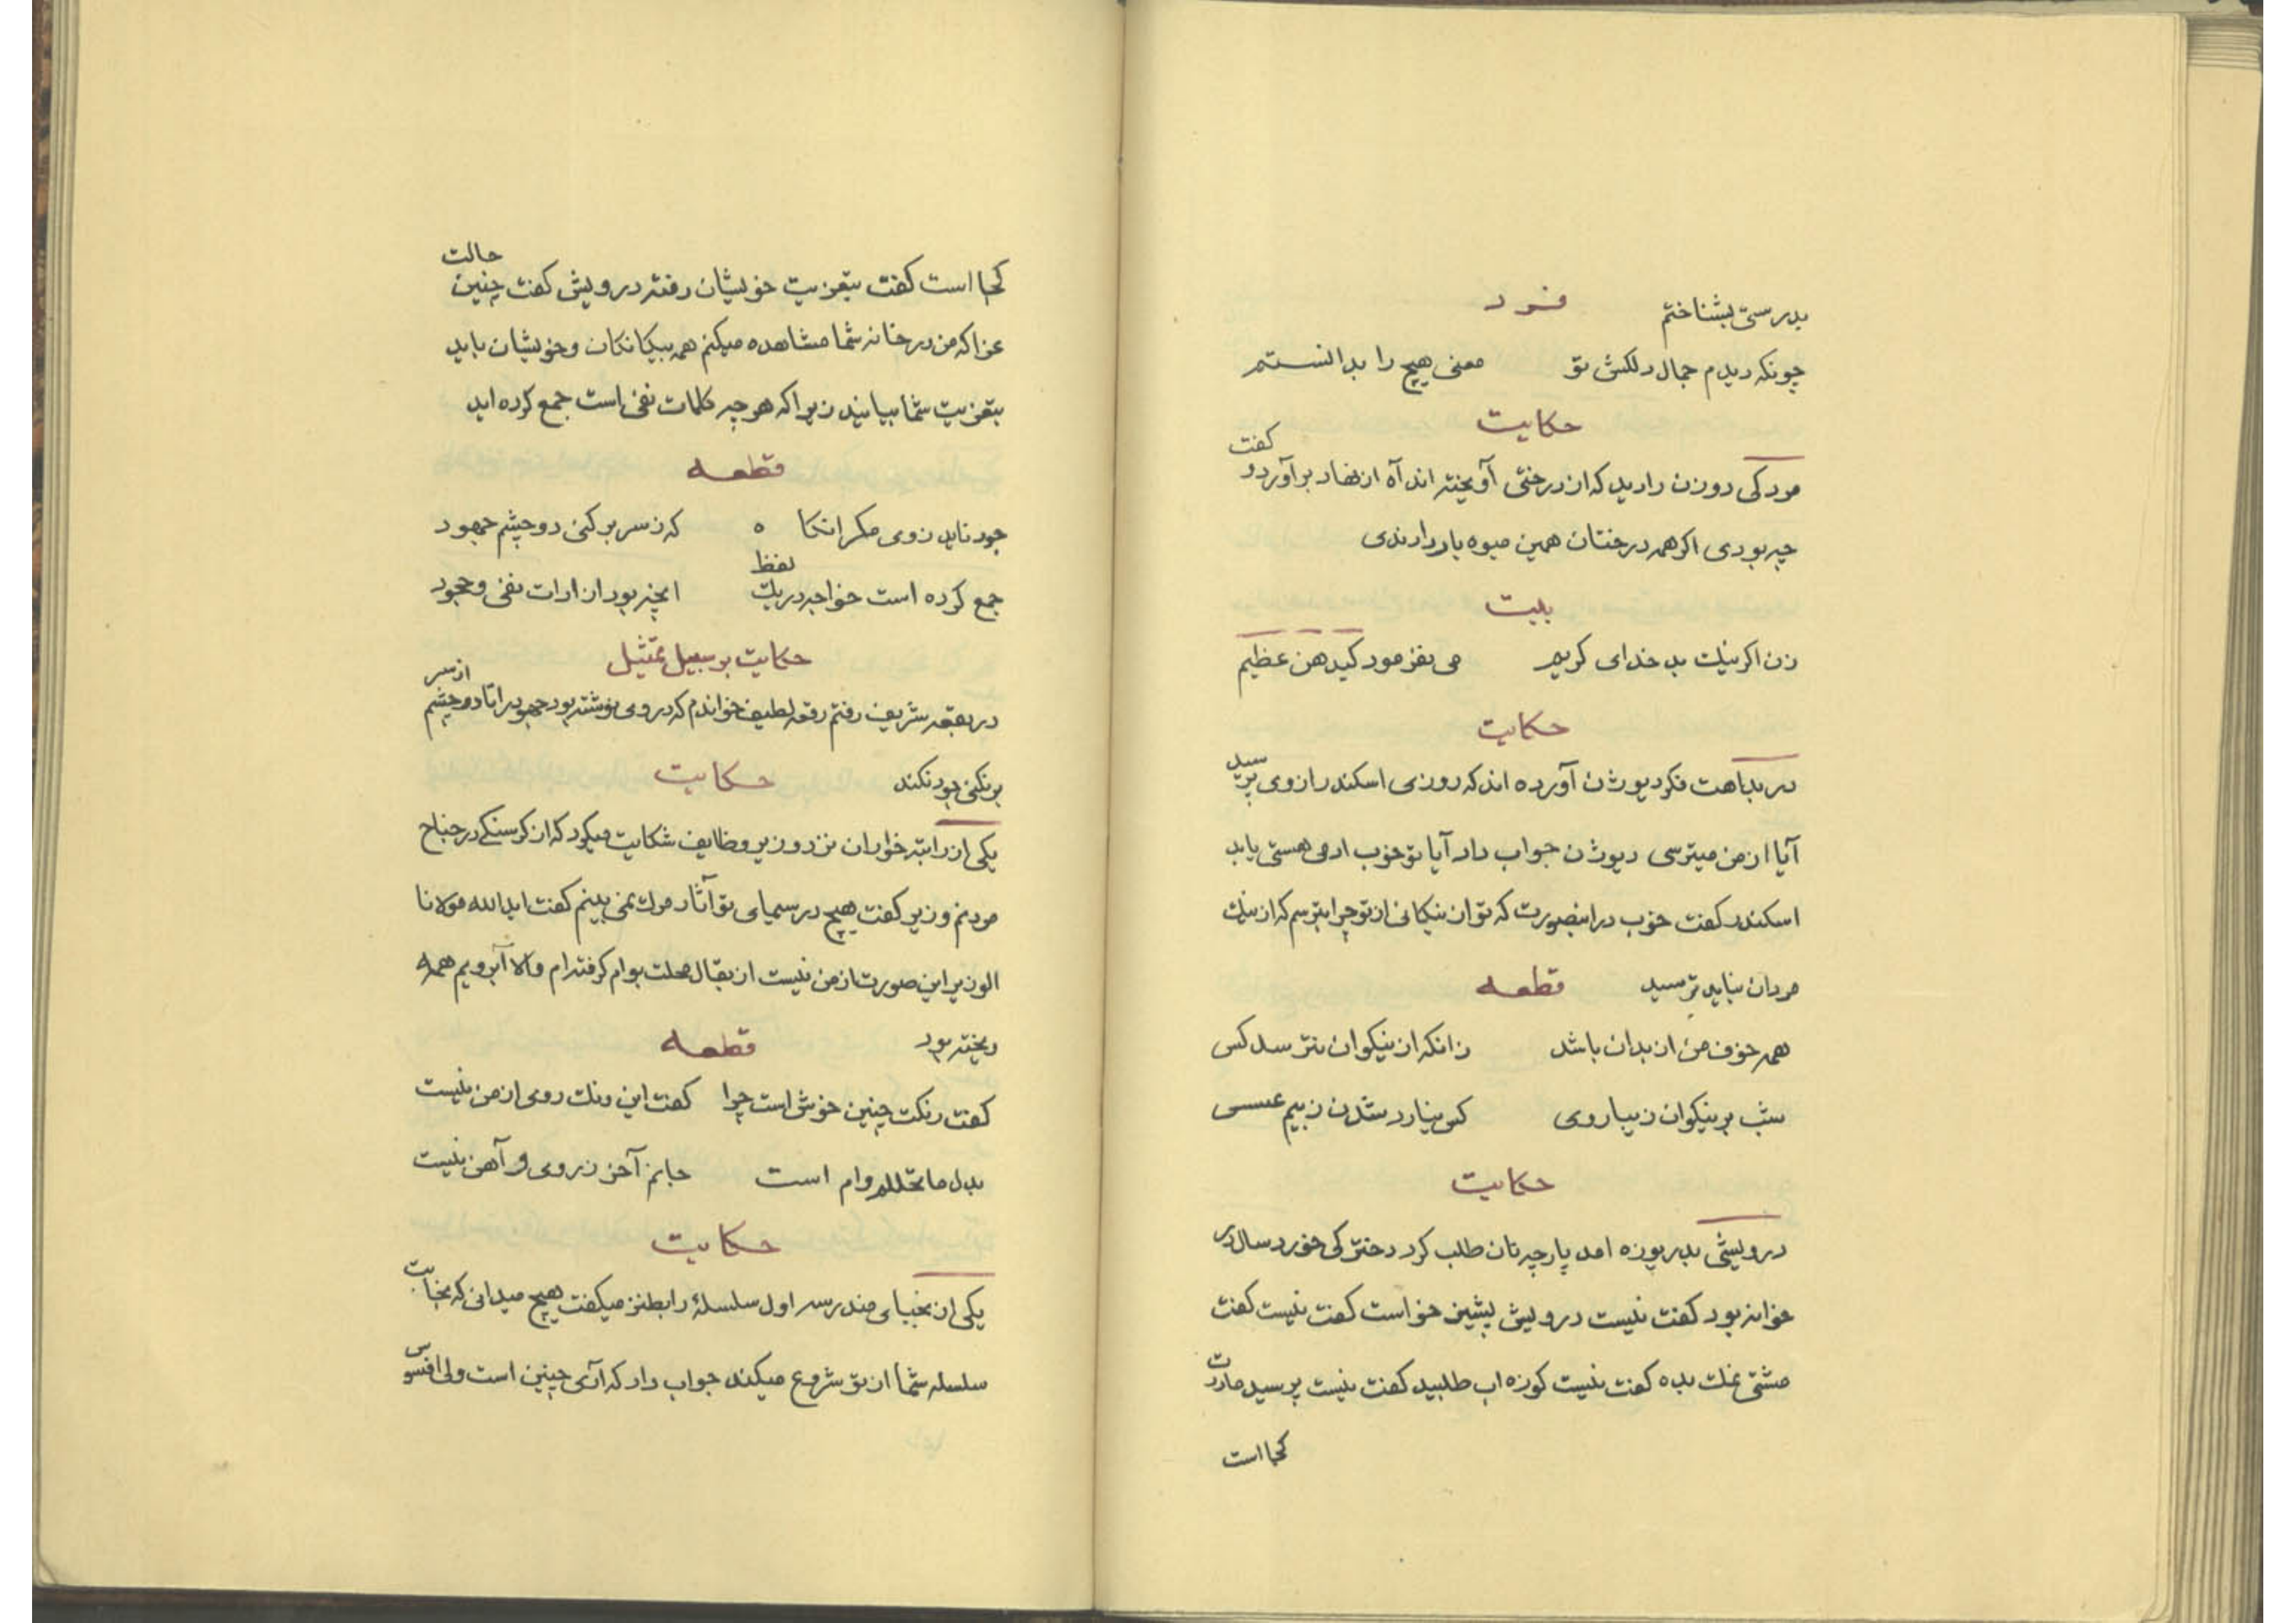 بدرستی بشناختم
فرد
چونکه دیدم جمال دلکش تو معنی هیچ را بدانستم
حکایت
مردکی دو زن را دید که از درختی آویخته اند آه از نهاد برآورد و گفت
چه بودی اگر همه درختان همین میوه بار دادندی
بیت
زن اگر نیک بد خدای کریم می نفرمود کیدهن عظیم
حکایت
در بداهت فکر دیوژن آورده اند که روزی اسکندر از وی پرسید
آیا از من میترسی دیوژن جواب داد آیا تو خوب ادمی هستی یا بد
اسکندر گفت خوب در اینصورت که تو از نیکانی از تو چرا بترسم که از نیک
مردان نباید ترسید قطعه
همه خوف من از بدان باشد زانکه از نیکوان نترسد کس
شب بر نیکوان زیباروی کی نیارد شدن ز بیم عسس
حکایت
درویشی بدریوزه امد پارچه نان طلب کرد دخترکی خورد سال در
خوانه بود گفت نیست درویش پشین خواست گفت نیست گفت
مشتی نمک بده گفت نیست کوزه اب طلبید گفت نیست پرسید مادرت
کجا است
کجا است گفت بتعزیت خویشان رفته درویش گفت چنین حالت
عزا که من در خانه شما مشاهده میکنم همه بیکانکان و خویشان باید
بتعزیت شما بیایند زیرا که هر چه کلمات نفی است جمع کرده اید
قطعه
جود ناید ز وی مکر انگاه که ز سر بر کنی دو چشم جهود
جمع کرده است خواجه در یک لفظ انچه بود از ادات نفی و جحود
حکایت بر سبیل تمثیل
در بقعه شریف رفتم رقعه لطیف خواندم که در وی نوشته بود جهود را تا دو چشم از سر
بر نکنی جود نکند حکایت
یکی از راتبه خواران نزد وزیر وظایف شکایت میکرد که از گرسنگی در جناح
مردنم وزیر گفت هیچ در سیمای تو آثار مرک نمی بینم گفت اید الله مولانا
الوزیر این صورت از من نیست از بقال محلت بوام گرفته ام والا آبرویم همه
ریخته بود قطعه
گفت رنکت چنین خوش است چرا گفت این رنک روی از من نیست
بدل ما تحلله وام است جانم آخر ز روی و آهن نیست
حکایت
یکی از نجبای مندرسه اول سلسلهٔ را بطنز میگفت هیچ میدانی که نجابت
سلسله شما از تو شروع میکند جواب داد که آری چنین است ولی افسوس